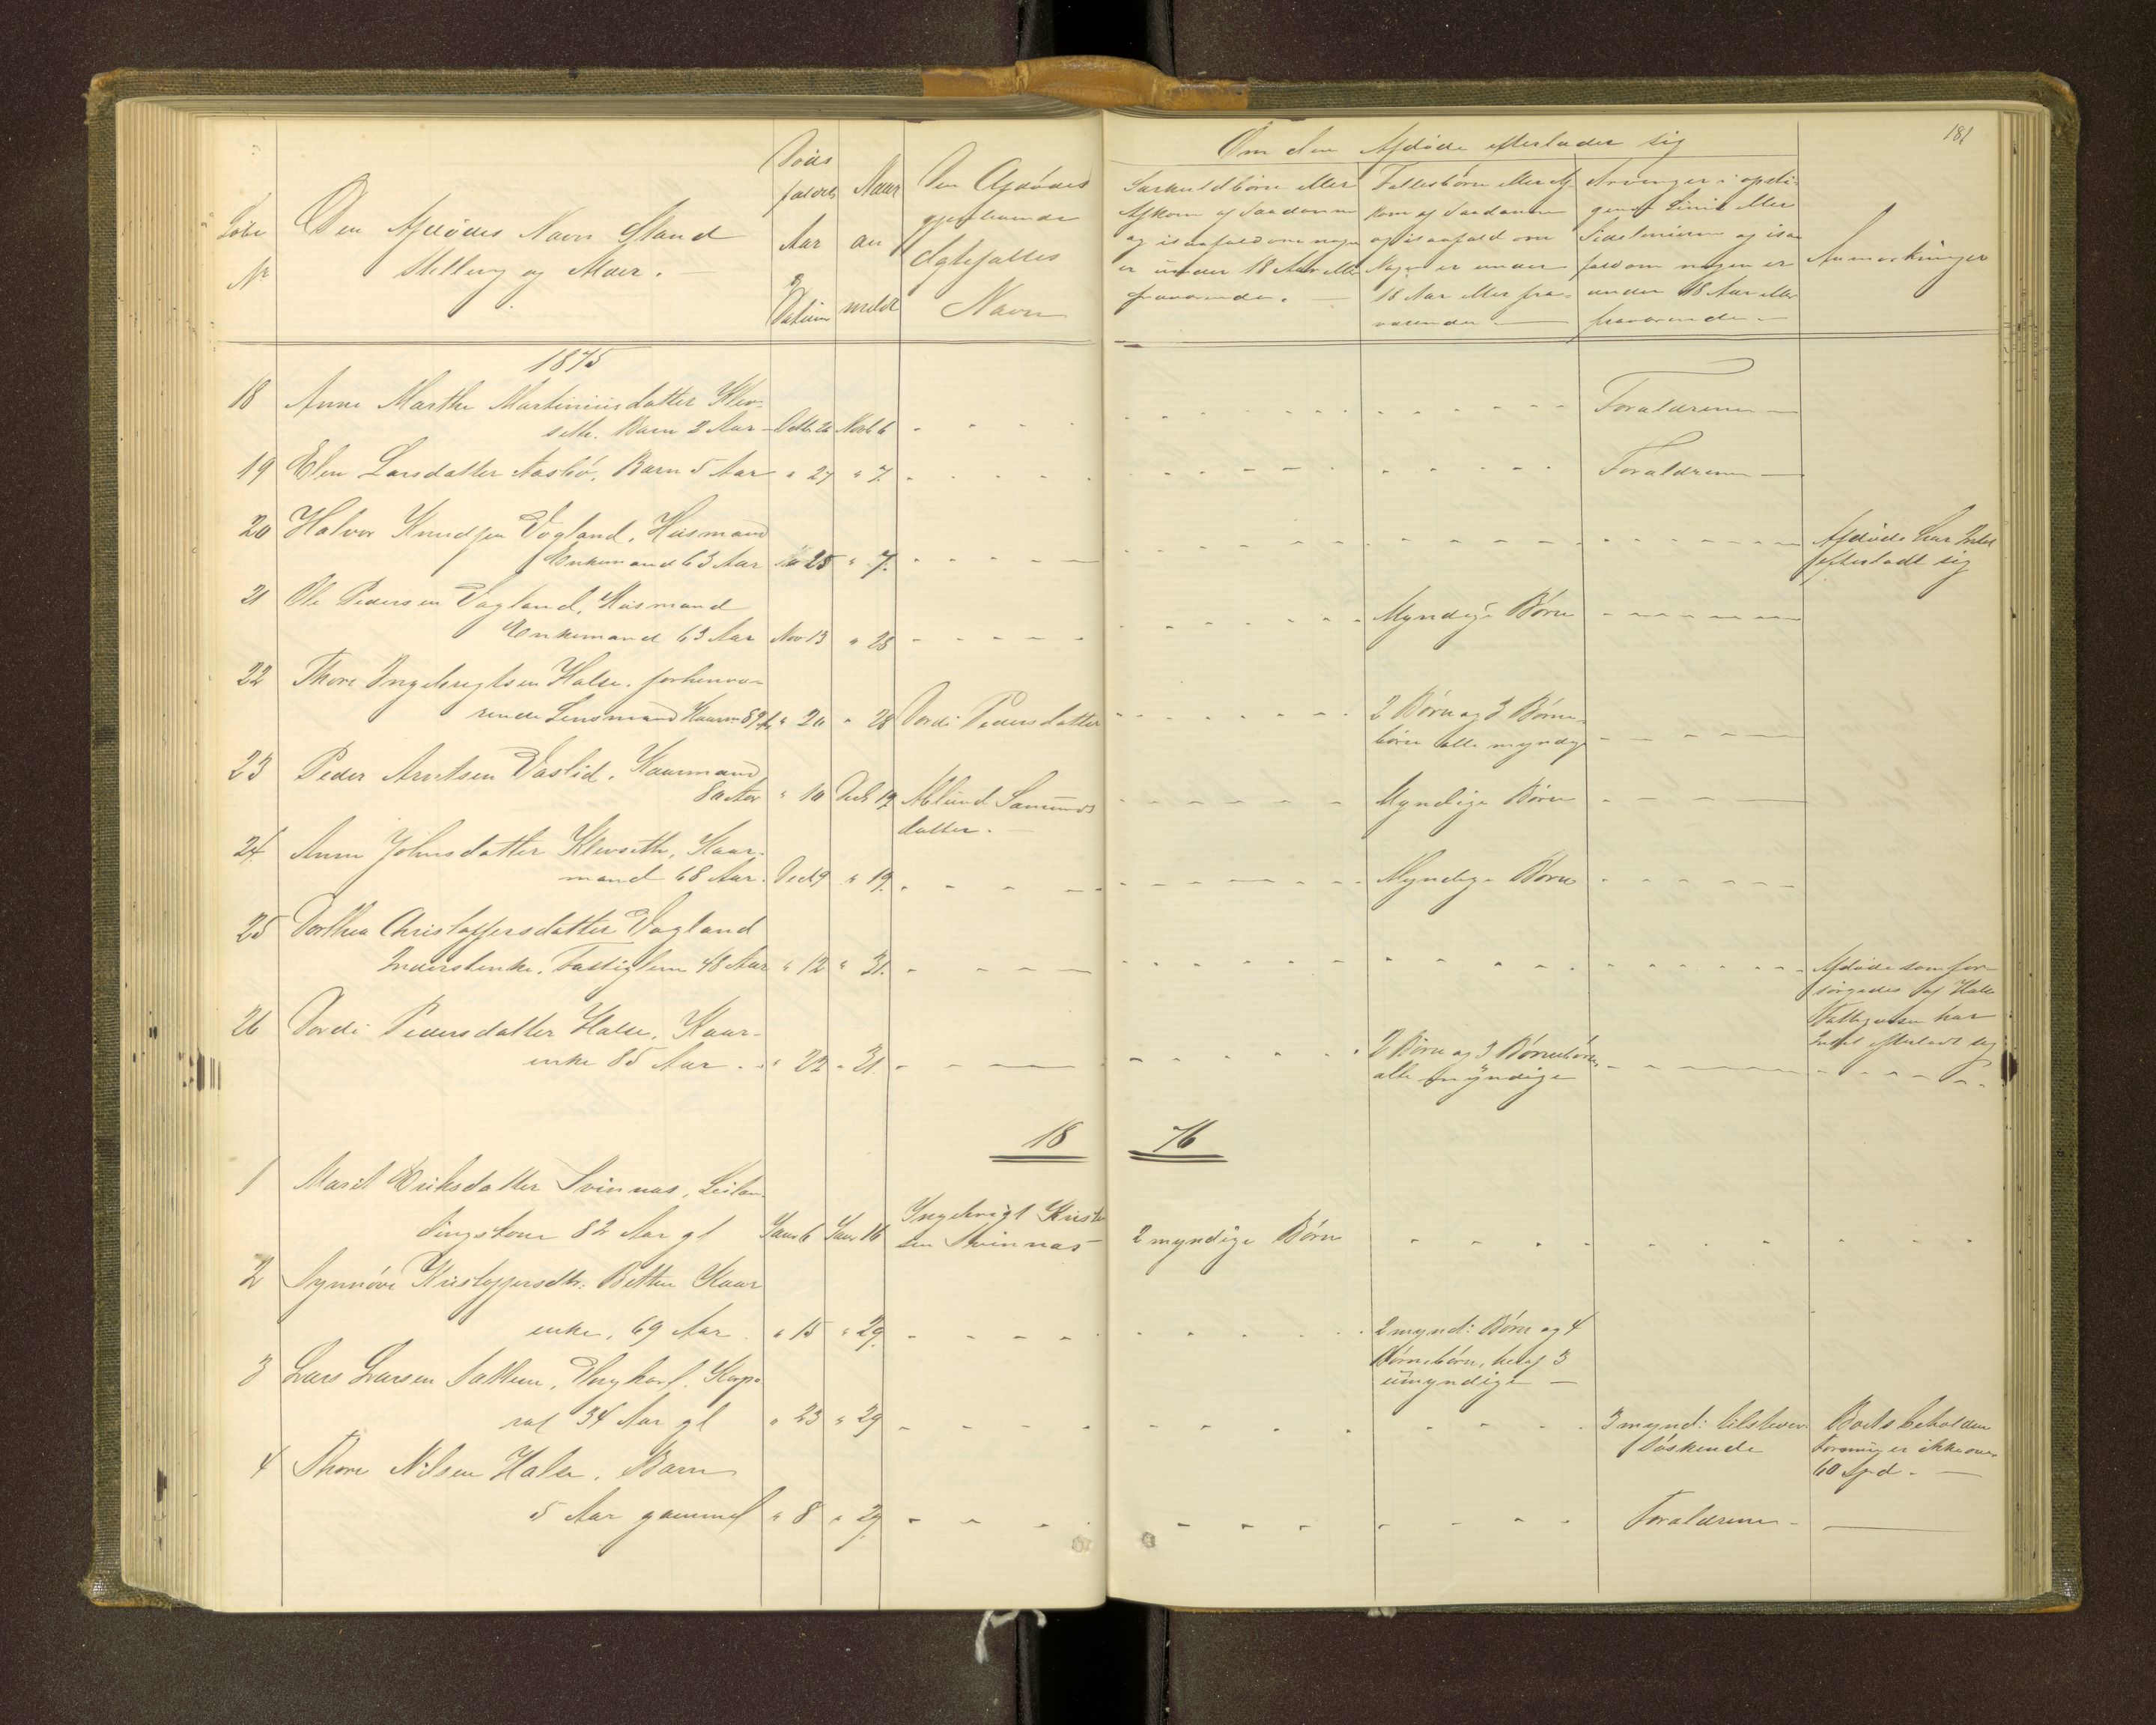 181
Om den Afdøde efterlader sig
Løbe
Nr
Den Afdødes Navn Stand
Stilling og Alder.
Døds
faldets
Aar
og
Datum
Naar
an
meldt
Den Afdødes
gjenlevende
Ægtefælles
Navn
Særkuldbørn eller
Afkom af Saadanne
og isaafald om nogen
er under 18 Aar eller
fraværende.
Fællesbørn eller Af-
kom af Saadanne
og isaafald om
Nogen er under
18 Aar eller fra-
værende
Arvinger i opsti-
gende Linie eller
Sidelinierne og isaa
fald om nogen er
under 18 Aar eller
fraværende
Anmærkninger
1875
18 Anne Marthe Martinusdatter Klev-
seth. Barn 2 Aar - Octb. 26 Novb 6 Forældrene
19 Elen Larsdatter Aasbø, Barn 5 Aar " 27 " 7. Forældrene
20 Halvor Knudsen Vogland, Husmand
Enkemand 63 Aar 25 " 7.
Afdøde har Intet
efterladt sig
21 Ole Pedersen Vagland, Husmand
Enkemand 63 Aar Nov 13 " 28 Myndige Børn
22 Thore Ingebrigtsen Halse, forhenvæ-
rende Lensmand Kaarm 89 A. " 20 " 28 Dordi Pedersdatter 2 Børn og 3 Børne-
børn alle myndige
23 Peder Arntsen Vaslid, Kaarmand
80 Aar " 10 Decb 19 Ablund Samunds
datter. Myndige Børn
24 Anne Johnsdatter Klevseth, Kaar-
mand 68 Aar. Decb 9 " 19. Myndige Børn
25 Dorthea Christoffersdatter Vagland
Inderstenke, Fattiglem 48 Aar " 12 " 31.
Afdøde som for-
sørgedes af Halse
Fattigvæsen har
Intet efterladt sig
26 Dordi Pedersdatter Halse, Kaar-
enke 85 Aar. " 22 " 31. 2 Børn og 3 Børnebørn,
alle myndige
18 76
1 Marit Eriksdatter Svinnæs, Leilen-
dingskone 82 Aar gl Janr 6 Janr 16 Ingebrigt Krist-
sen Svinnæs 2 myndige Børn
2 Synnøve Kristoffersdtr: Betten Kaar
enke, 69 Aar. " 15 " 29. 2 mynd: Børn og 4
Børnebørn, heraf 3
umyndige
3 Lars Larsen Sæther, Ungkarl. Korpo-
ral 34 Aar gl " 23 " 29 3 mynd:
Søskende
Boets beholdne
Formue er ikke over
60 Spd.
4 Thore Nilsen Halse. Barn
5 Aar gammel " 8 " 29. Forældrene